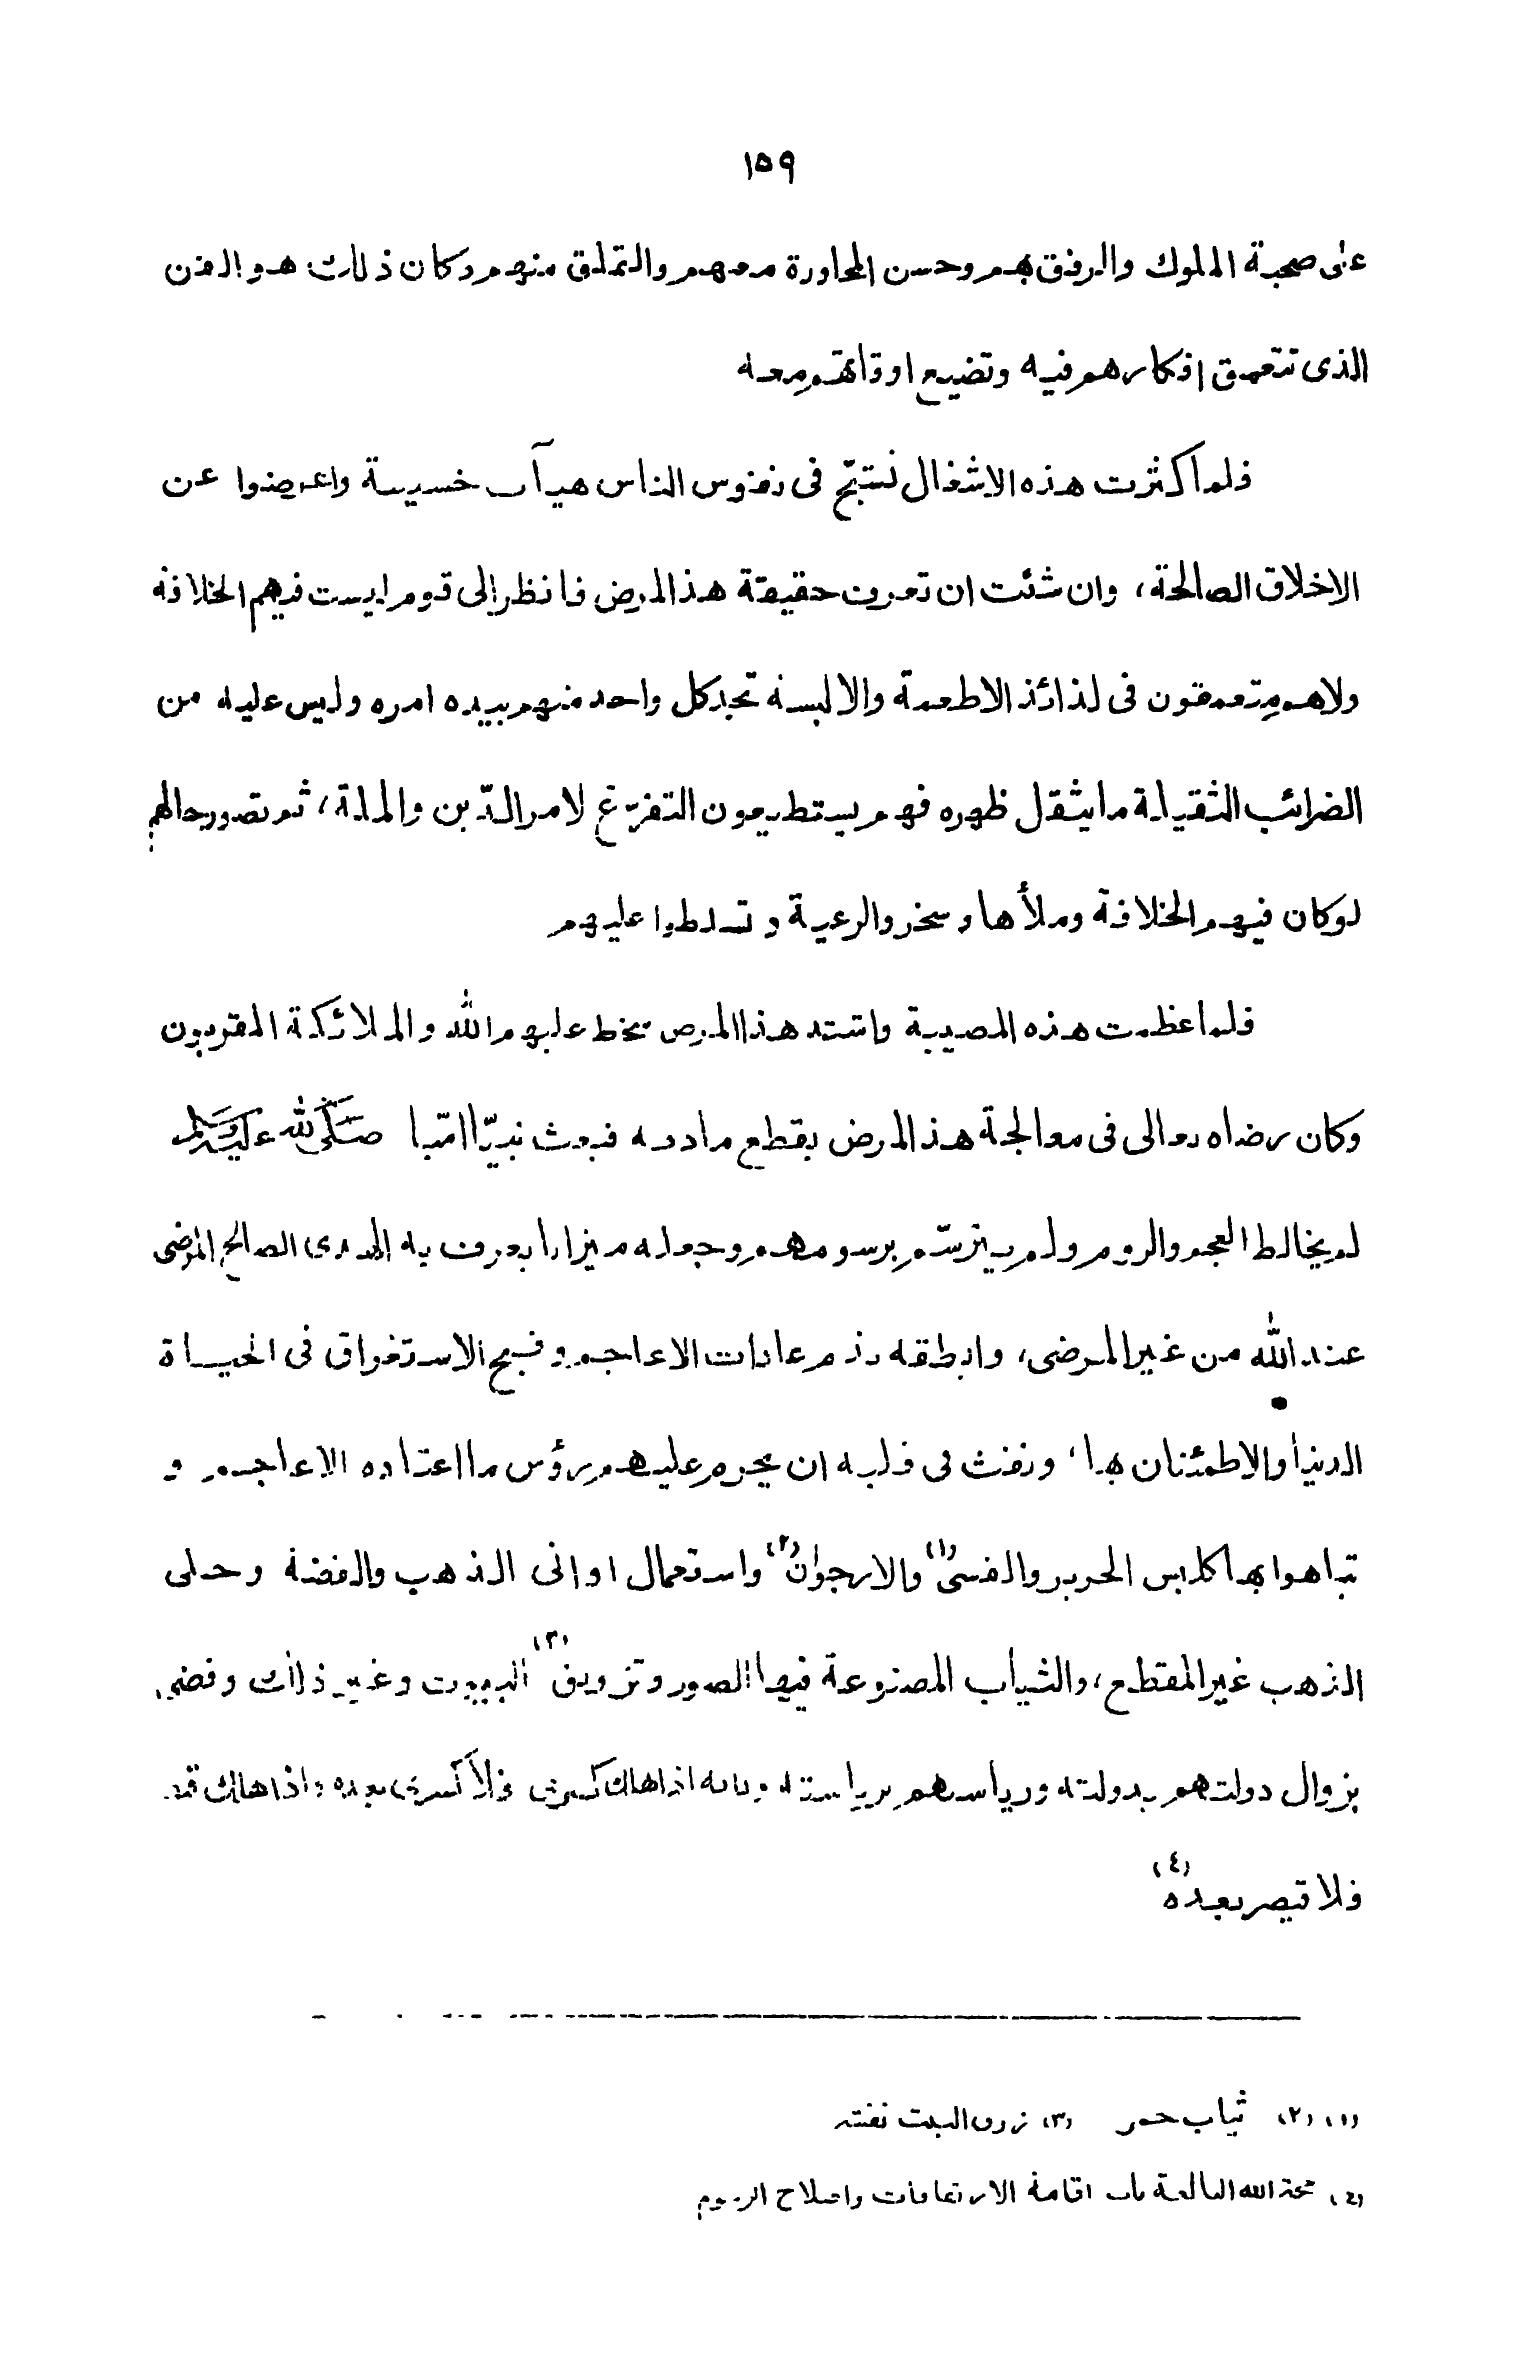 ١٥٩
على صحبة الملوك والرفق بهم وحسن المحاورة معهم والتملق منهم وكان ذلك هو الفن
الذى تتعمق افكارهم فيه وتضيع اوقاتهم معه
فلما كثرت هذه الاشغال نتبّج فى نفوس الناس هيآت خسيسة واعرضوا عن
الاخلاق الصالحة، وان شئت ان تعرف حقيقة هذ المرض فانظر الى قوم ليست فيهم الخلافة
ولا هم متعمقون فى لذائذ الاطعمة والالبسة تجد كل واحد منهم بيده امره وليس عليه من
الضرائب الثقيلة ما يثقل ظهره فهم يستطيعون التفرّغ لامر الدّين والملة، ثم تصور حالهم
لوكان فيهم الخلافة وملأها وسخر والرعية وتسلطوا عليهم
فلما عظمت هذه المصيبة واشتد هذا المرض سخط عليهم الله والملائكة المقربون
وكان رضاه تعالى فى معالجة هذ المرض بقطع مادته فبعث نبيّا امّيا صلى الله عليه وسلم
لم يخالط العجم والروم ولم يترسّم برسومهم وجعله ميزانا يعرف به الهدى الصالح المرضى
عند الله من غير المرضى، وانطقه بذم عادات الاعاجم وقبح الاستغراق فى الحياة
الدنيا والاطمئنان بها، ونفث فى قلبه ان يحرم عليهم رؤس ما اعتاده الاعاجم و
تباهوا بها كلبس الحرير والقسى (١) والارجوان (٢) واستعمال اوانى الذهب والفضة وحلى
الذهب غير المقطع، والثياب المصنوعة فيها الصور وتزويق (٣) البيوت وغير ذلك وقضى
بزوال دولتهم بدولته ورياستهم برياسته وبانه اذا هلك كسرى فلا كسرى بعده واذا هلك قيصر
فلا قيصر بعده (٤)
(١)، (٢) ثياب حمر (٣) زوق البيت نقشه
(٤) حجة الله البالغة باب اقامة الارتفاقات واصلاح الرسوم